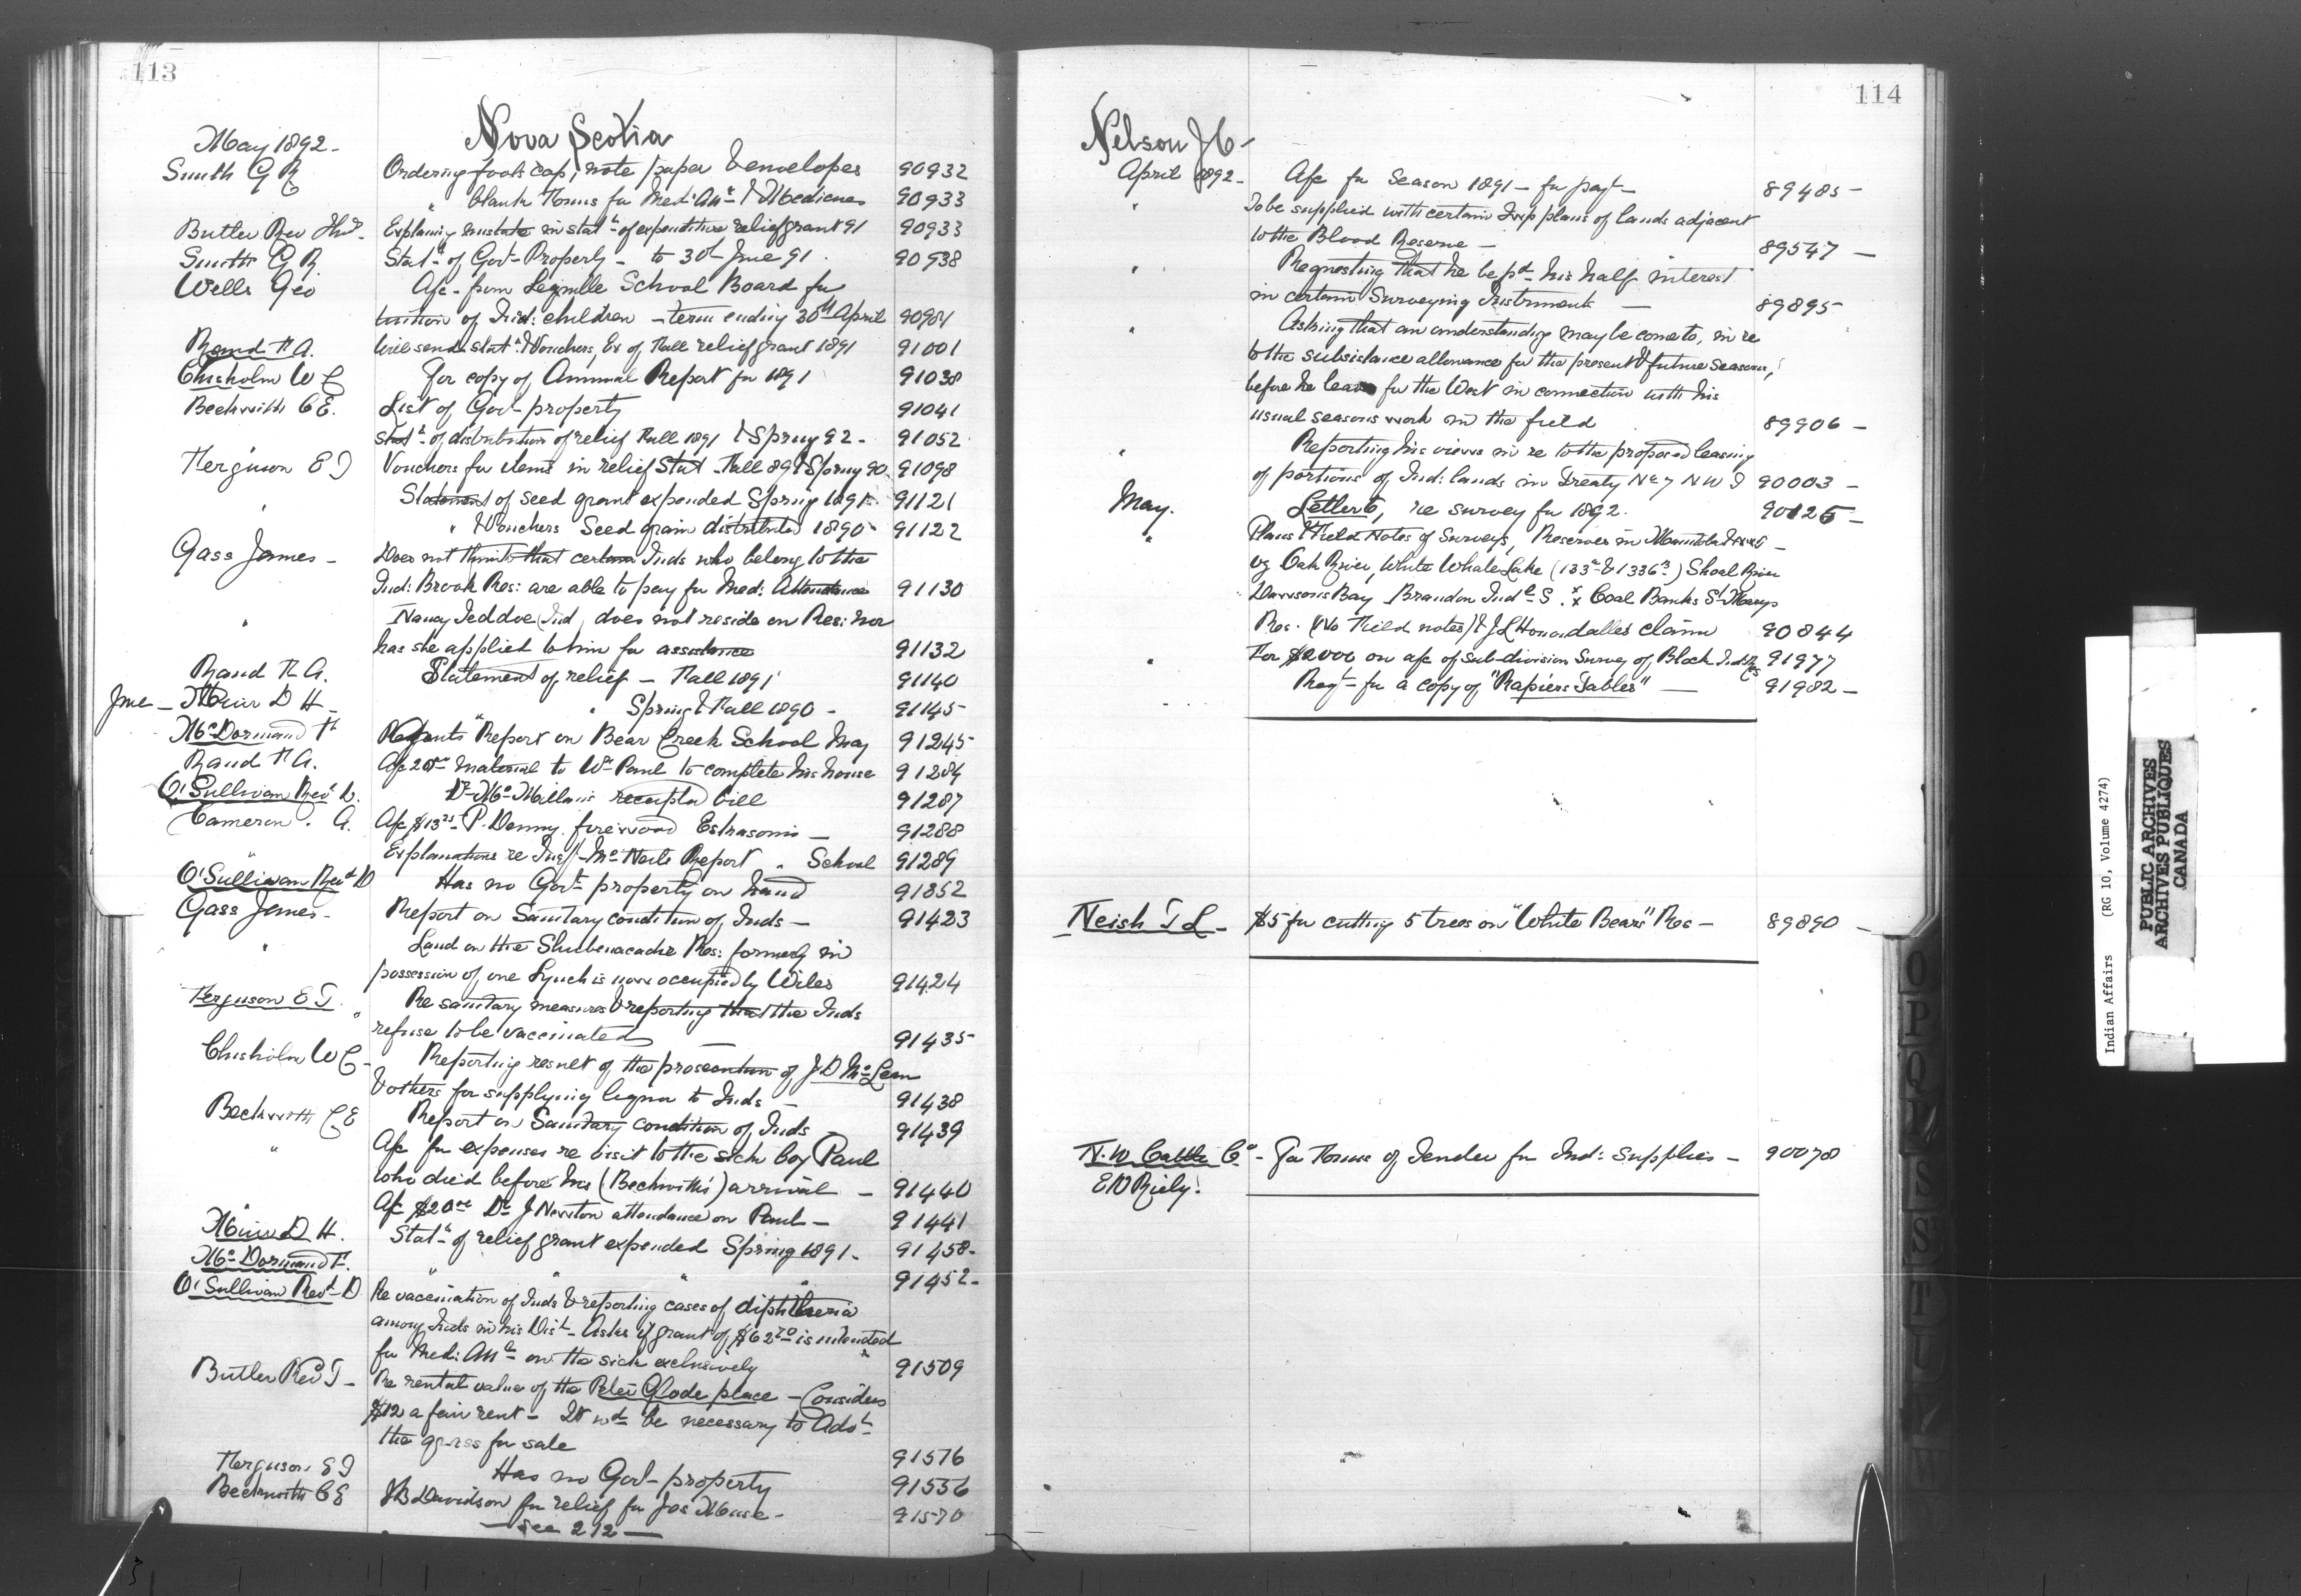 113
Nova Scotia
May 1892 -
Smith G R Ordering foolscap, note paper & envelopes 90932
" blank Forms for Med: Att & Medicines 90933
Butler Rev Thos. Explaining mistake in statt of expenditure relief grant 91 90933
Smith G R Statt of Govt Property - to 30th June 91 . 90938
Wells Geo A/c - from School Board for
tuition of Ind: children - term ending 30th April 90984
Rand F A. Will send Statt & Vouchers, Ex of Fall relief grant 1891 91001
Chisholm W C For copy of Annual Report for 1891 91038
Beckwith C E. List of Govt property 91041
Statt of distribution of relief Fall 1891 & Spring 92 - 91052
Ferguson E J Vouchers for items in relief Stat - Fall 89 & Spring 90. 91098
" Statement of seed grant expended Spring 1891 - 91121
" & Vouchers Seed grain distributed 1890 - 91122
Gass James - Does not think that certain Inds who belong to the
Ind: Brook Res: are able to pay for Med: Attendance 91130
" Nancy Jeddoe (Ind) does not reside on Res: nor
has she applied to him for assistance 91132
Rand F A. Statement of relief - Fall 1891 91140
June - Muir D H - " Spring & Fall 1890 - 91145
McDormand F Report on Bear Creek School May 91245
Rand F A. A/c material to Wm Paul to complete his house 91284
O'Sullivan Revd D. Dr McMillan's receipted bill 91287
Cameron . A. A/c $13 25 P. Denny firewood Eskasoni - 91288
" Explanations re Insp McNeil's Report " School 91289
O'Sullivan Revd D Has no Govt property on hand 91352
Gass James - Report on Sanitary condition of Inds - 91423
" Land on the Shubenacadie Res: formerly in
possession of one Lynch is now occupied by Wiles 91424
Ferguson E J. " Re sanitary measures & reporting that the Inds
refuse to be vaccinated 91435
Chisholm W C - Reporting result of the prosecution of J D McLean
& others for supplying liquor to Inds - 91438
Beckwith C E Report on Sanitary condition of Inds - 91439
" A/c for expenses re visit to the sick boy Paul
who died before his (Beckwith's) arrival - 91440
" A/c $20 00 Dr J Newton attendance on Paul - 91441
Muir D H. Statt of relief grant expended Spring 1891 - 91458 -
McDormand F. " " " " 91452 -
O'Sullivan Revd D Re vaccination of Inds & reporting cases of diphtheria
among Inds in his Dist - Asks if grant of $62 50 is intended
for Med: Att on the sick exclusively 91509
Butler Rev T - Re rental value of the Peter Glode place - Considers
$12 a fair rent - It wd be necessary to Advt
the grass for sale 91576
Ferguson E J Has no Govt property 91556
Beckwith C E J B Davidson for relief for Jos Muse - 91570
- see 212 -
114
Nelson J C -
April 1892 - A/c for Season 1891 - for payt - 89485 -
" To be supplied with certain Twp plans of lands adjacent
to the Blood Reserve - 89547 -
" Requesting that he be pd his half interest
in certain Surveying Instruments - 89895 -
" Asking that an understanding may be come to, in re
to the subsistance allowance for the present & future Seasons,
before he leaves for the West in connection with his
usual seasons work in the field 89906 -
" Reporting his views in re to the proposed leasing
of portions of Ind: lands in Treaty No 7 N W T 90003 -
May. Letter to, re survey for 1892. 90125 -
" Plans & Field Notes of Surveys, Reserves in Manitoba & N W T -
vz Oak River, White Whale Lake (133a & 133b) Shoal River
Dawsons Bay - Brandon Indl S . Coal Banks St Marys
Res - (No Field notes) & J L claim 90844
" For $2000 on a/c of sub-division Survey of Block Ind Res 91977
Reqt for a copy of "Rapiers Tables" - 91982 -
Neish T L - $5 for cutting 5 trees on "White Bears" Res - 89890 -
N. W. Cattle Co - For Forms of Tender for Ind: Supplies - 90078
E N Riely.
O
P
Q
R
S
S
T
U
V
W
Indian Affairs (RG 10, Volume 4274)
PUBLIC ARCHIVES
ARCHIVES PUBLIQUES
CANADA